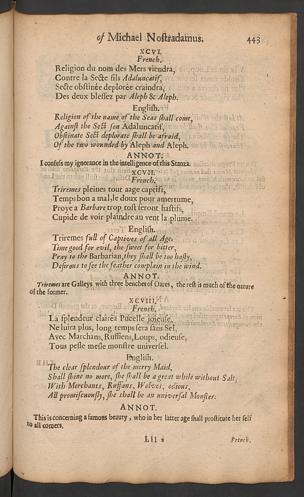 of Michael Nostradamus. 443
XCVI.
French.
Religion du nom des Mers viendra,
Contre la Secte fils Adaluncatif,
Secte obstinée deplorée craindra,
Des deux blessez par Aleph & Aleph.
English.
Religion of the name of the Seas shall come,
Against the Sect son Adaluncatif,
Obstinate Sect deplorate shall be afraid,
Of the two wounded by Aleph and Aleph.
ANNOT.
I confess my ignorance in the intelligence of this Stanza.
XCVII.
French.
Triremes pleines tout aage captifs,
Temps bon a mal, le doux pour amertume,
Proye a Barbare trop tost seront hastifs,
Cupide de voir plaindre au vent la plume.
English.
Triremes full of Captives of all Age,
Time good for evil, the sweet for bitter,
Pray to the Barbarian, they shall be too hasty,
Desirous to see the feather complain in the wind.
ANNOT.
Triremes are Galleys with three benches of Oares, the rest is much of the nature
of the former.
XCVIII.
French.
La splendeur claire a Pucelle joieuse,
Ne luira plus, long temps sera sans Sel,
Avec Marchans, Ruffiens, Loups, odieuse,
Tous pesle mesle monstre universel.
English.
The clear splendour of the merry Maid,
Shall shine no more, she shall be a great while without Salt,
With Merchants, Ruffans, Wolves, odious,
All promiscuously, she shall be an universal Monster.
ANNOT.
This is concerning a famous beauty, who in her latter age shall prostitute her self
to all comers.
Lll 2 French.